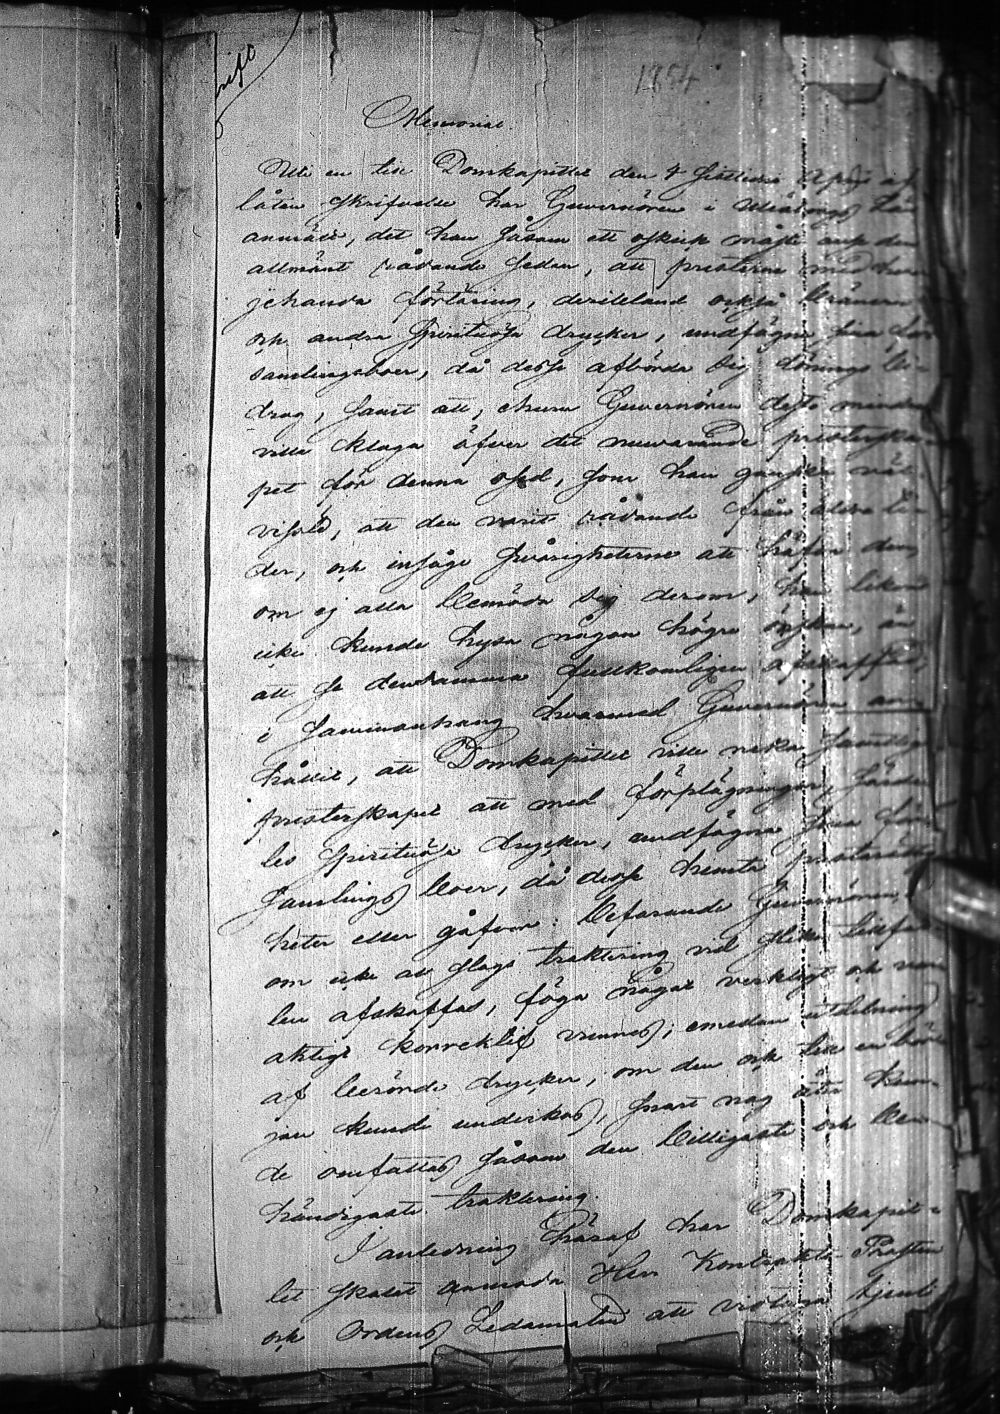 1854
Memorial.
Uti en till Domkapitlet den 7 sistledne April af-
låten skrifvelse har Guvernören i Uleåborgs Län
anmält, det han såsom ett oskick måste anse den
allmänt rådande seden, att presterne med
jehanda förtäring, deribland också bränvin
och andra spirituösa drycker, undfägna sina för-
samlingsboer, då desse afbörda sig tionings bi-
drag, samt att, ehuru Guvernören desto mindre
ville klaga öfver det nuvarande presterska-
pet för denna osed, som han ganska väl
visste, att den varit rådande från äldre ti-
der, och insåge svårigheterne att häfva den,
om ej alla bemöda sig derom, han lik-
icke kunde hysa någon högre önskan, än
att se densamma fullkomligen afskaffad,
i sammanhang hvarmed Guvernören an-
hållit, att Domkapitlet ville neka samtliga
presterskapet att med förplägningar, särde-
les spirituösa drycker, undfägna sina för-
samlings boer, då desse hemta presträttig-
heter eller gåfvor. Befarande Guvernören,
om icke all slags traktering vid slika tillfäl-
len afskaffas, föga något verkligt och var-
aktigt korrektif vinnes, emedan utdelning
af berörde drycker, om den och till en bör-
jan kunde undvikas, snart nog åter kun-
de omfattas såsom den billigaste och be-
händigaste traktering.
I anledning häraf har Domkapit-
let skolat anmoda Herr Kontrakts Prosten
och Ordens Ledamoten att vidtaga tjenl